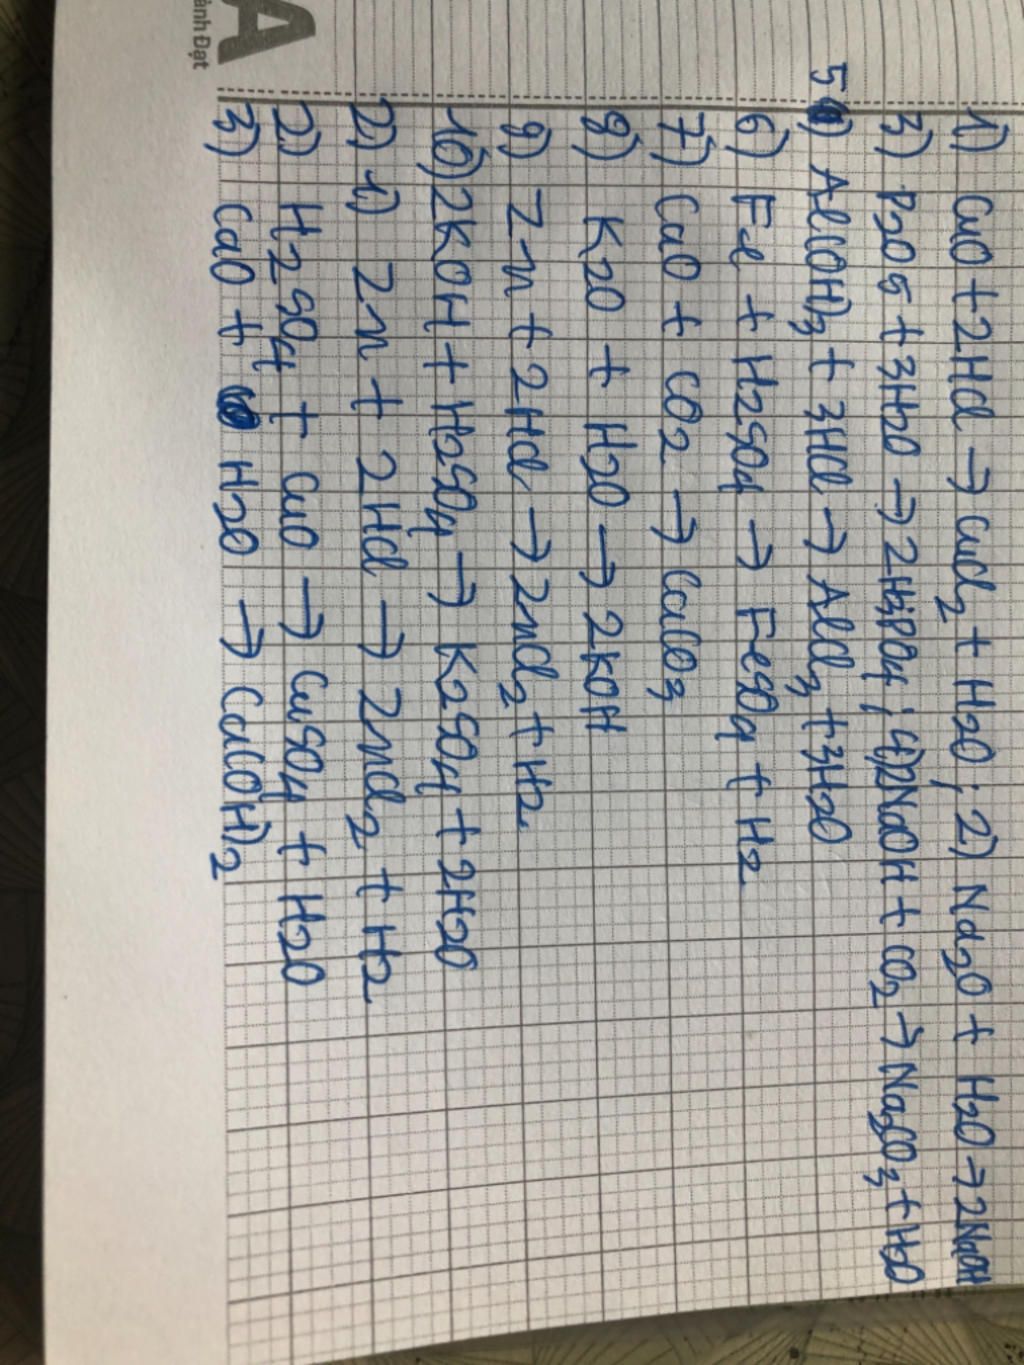 A
ành Đạt
1) CuO + 2HCl → CuCl2 + H2O ; 2) Na2O + H2O → 2NaOH
3) P2O5 + 3H2O → 2H3PO4 ; 4) 2NaOH + CO2 → Na2CO3 + H2O
5) Al(OH)3 + 3HCl → AlCl3 + 3H2O
6) Fe + H2SO4 → FeSO4 + H2
7) CaO + CO2 → CaCO3
8) K2O + H2O → 2KOH
9) Zn + 2HCl → ZnCl2 + H2
10) 2KOH + H2SO4 → K2SO4 + 2H2O
2) 1) Zn + 2HCl → ZnCl2 + H2
2) H2SO4 + CuO → CuSO4 + H2O
3) CaO + H2O → Ca(OH)2